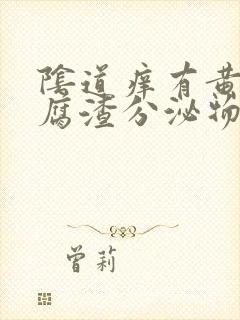 陰道痒有黄
腐渣分泌物
曾莉